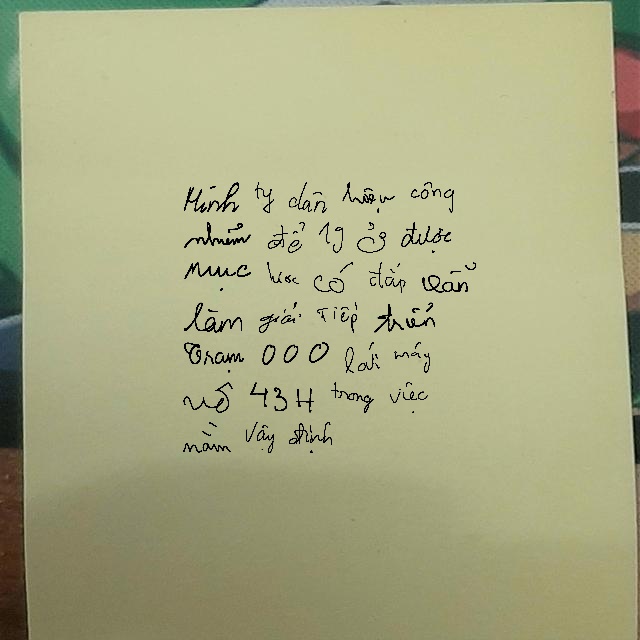 Minh ty dân hiệu công
nhiễm để 1g ở được
mục học có đắp dẫn
làm giải Tiếp triển
Trạm 000 lái máy
vô 43H trong việc
nằm vậy định